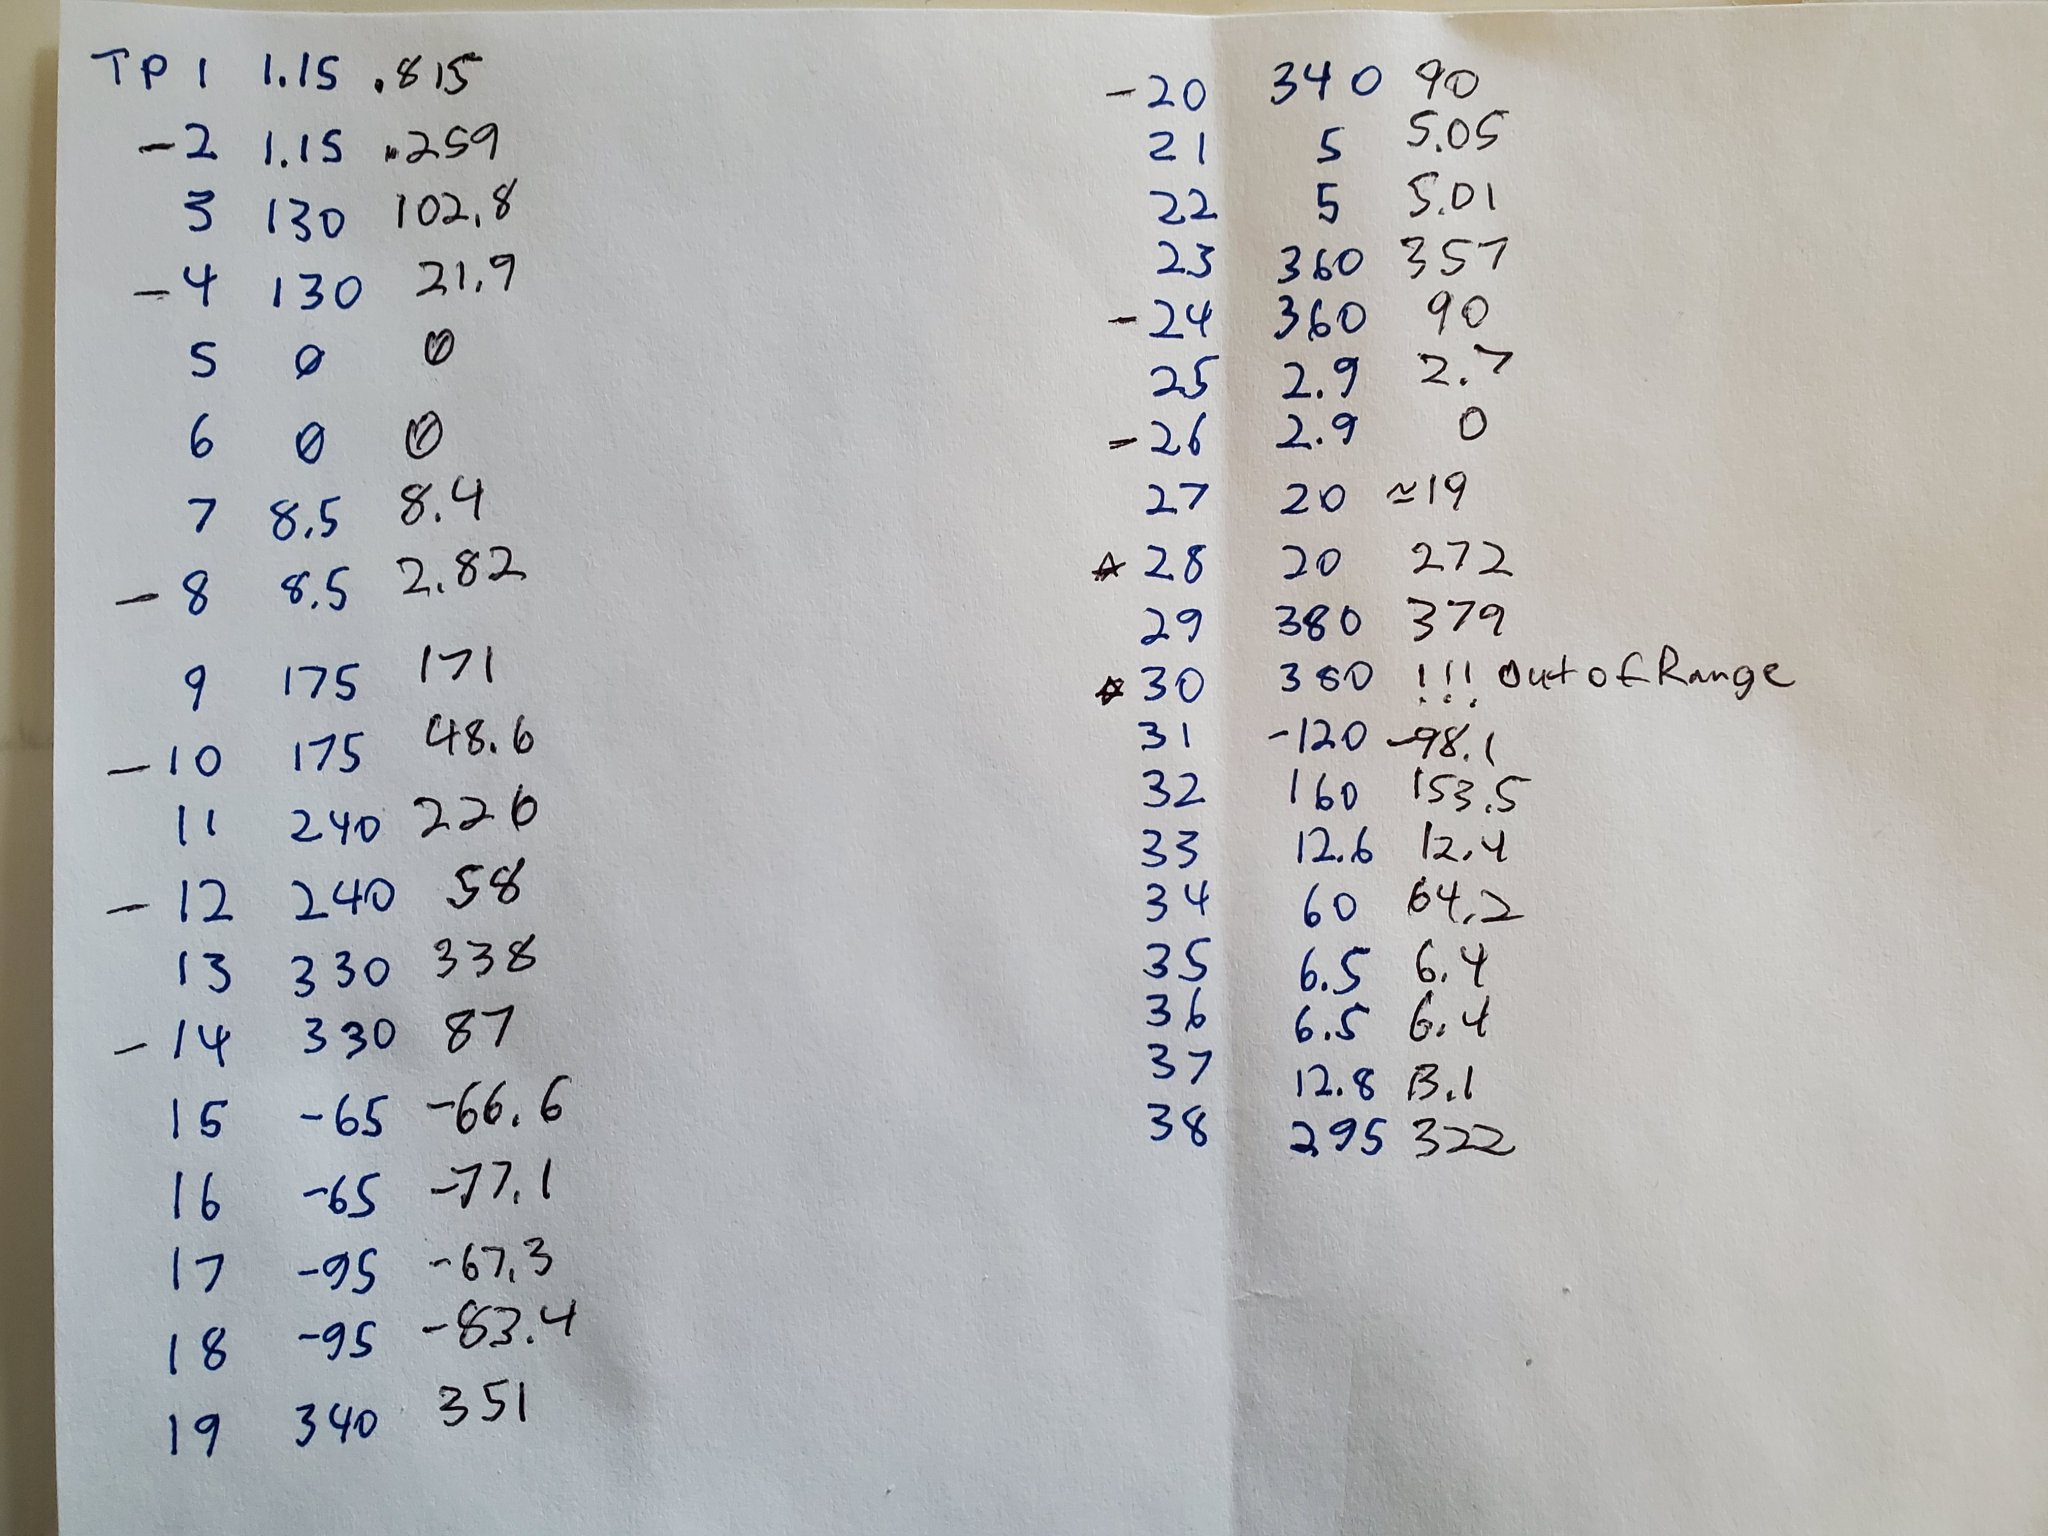 TP 1 1.15 .815
-2 1.15 .259
3 130 102.8
-4 130 21.9
5 0 0
6 0 0
7 8.5 8.4
-8 8.5 2.82
9 175 171
-10 175 48.6
11 240 226
-12 240 58
13 330 338
-14 330 87
15 -65 -66.6
16 -65 -77.1
17 -95 -67.3
18 -95 -83.4
19 340 351
-20 340 90
21 5 5.05
22 5 5.01
23 360 357
-24 360 90
25 2.9 2.7
-26 2.9 0
27 20 ≈19
☆ 28 20 272
29 380 379
☆ 30 380 !!! Out of Range
31 -120 -98.1
32 160 153.5
33 12.6 12.4
34 60 64.2
35 6.5 6.4
36 6.5 6.4
37 12.8 13.1
38 295 322